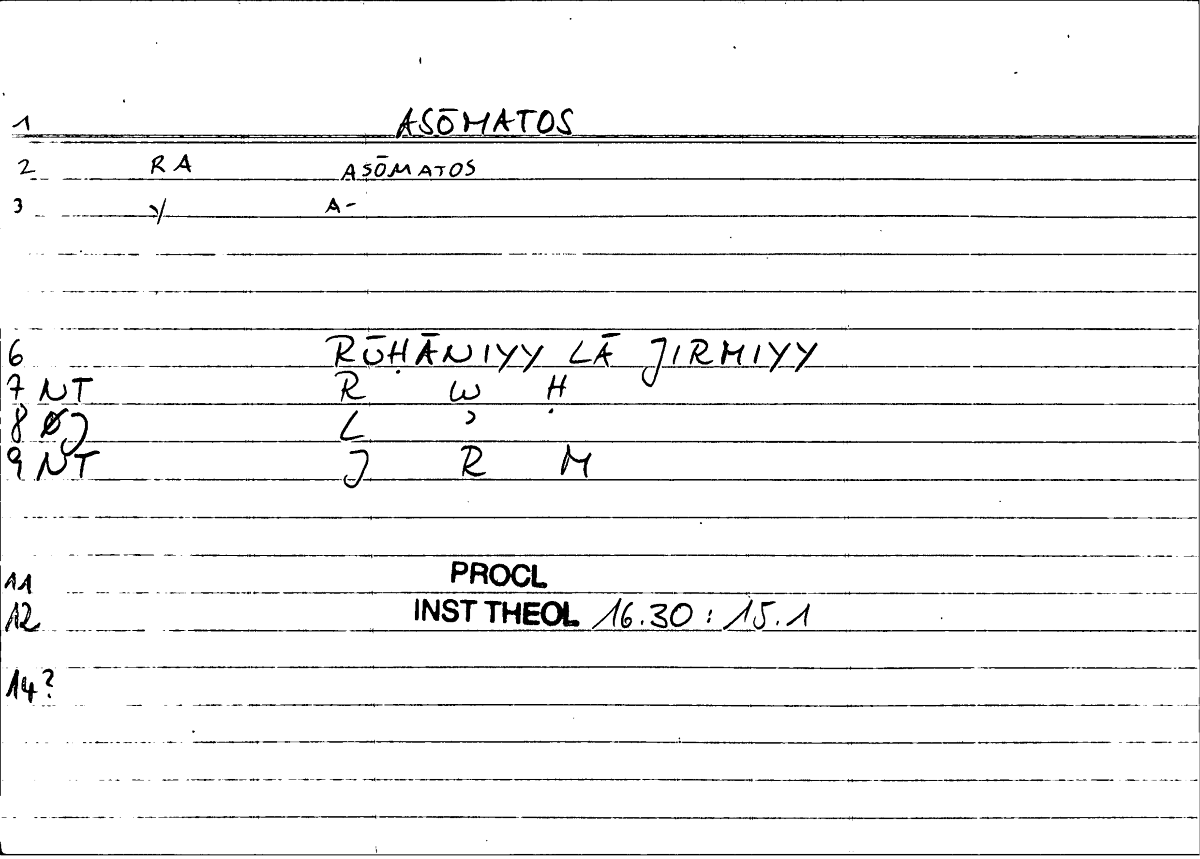 1 ASŌMATOS
2 RA ASŌMATOS
3 y A-
6 RŪḤĀNIYY LĀ JIRMIYY
7 NT R W Ḥ
8 ØJ L ʾ
9 NT J R M
11 PROCL
12 INST THEOL 16.30 : 15.1
14?